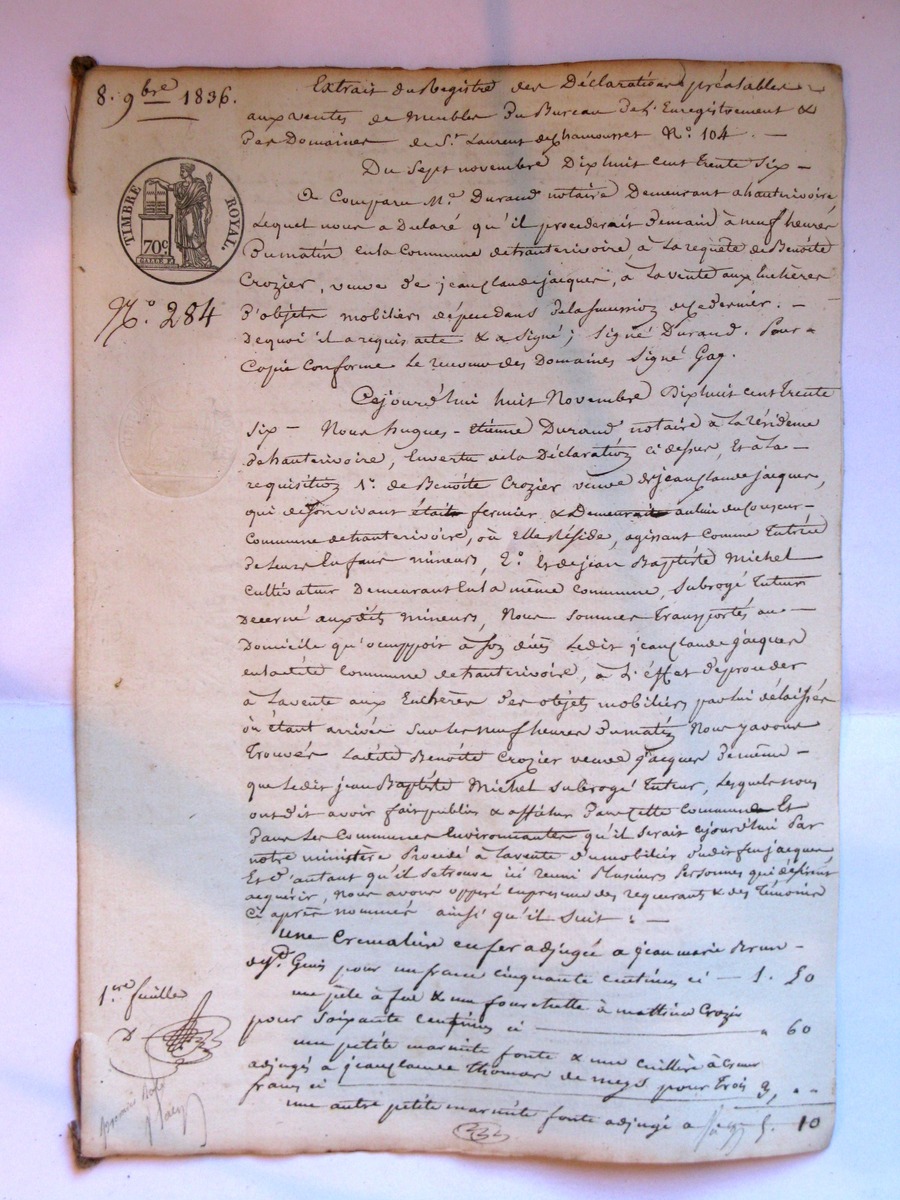 8. 9bre 1836.
TIMBRE ROYAL.
70c
N.o 284
Extrait du Registre des Déclarations préalables
aux ventes de Meubles Du Bureau De L'Enregistrement &
Des Domaines de St. Laurent de Chamousset No. 104. —
Du Sept novembre Dix huit cent trente Six —
A Comparu Me. Durand notaire Demeurant a hauterivoire
Lequel nous a Déclaré qu'il procéderait Demain à neuf heures
Du matin en la Commune de hauterivoire, à La requête de Benoite
Crozier, veuve de jean Claude jacques, à La vente aux Enchères
D'objets mobiliers dépendans De la succession de ce dernier. —
De quoi il a requis acte & a Signé; Signé Durand. Pour
Copie Conforme Le receveur des Domaines Signé Gay.
Cejourd'hui huit Novembre Dix huit cent trente
Six — Nous hugues-Etienne Durand notaire à La résidence
de hauterivoire, En vertu de la Déclaration ci dessus, Et à La
requisition 1o. de Benoite Crozier veuve de jean Claude jacques,
qui de son vivant était fermier & Demeurait au lieu du
Commune de hauterivoire, où Elle réside, agissant comme Tutrice
de Leurs Enfans mineurs, 2o. Et de jean Baptiste Michel
Cultivateur Demeurant en La même Commune, Subrogé Tuteur
Décerné auxdits mineurs, Nous Sommes Transportés au —
Domicile qu'occuppoit à son décès Ledit jean Claude jacques
en ladite Commune de hauterivoire, à L'effet de proceder
à La vente aux Enchères Des objets mobiliers par lui délaissés
où étant arrivés Sur Les neuf heures Du matin Nous y avons
Trouvés Ladite Benoite Crozier veuve jacques De même —
que Ledit jean Baptiste Michel Subrogé Tuteur, Lesquels nous
ont dit avoir fait publier & afficher Dans cette Commune Et
Dans Les Communes Environnantes qu'il Serait cejourd'hui Par
notre ministère Procédé à La vente du mobilier dudit feu jacques
Et D'autant qu'il se trouve ici reuni Plusieurs Personnes qui désirent
acquérir, Nous avons en presence des requerants & des Témoins
Ci après nommés ainsi qu'il Suit : —
une Cremalière en fer adjugée a jean marie Brun —
de Gruis pour un franc cinquante centimes ci — 1. 50
une pèle à feu & une fourchette à mathieu Crozier
pour Soixante centimes ci — " 60
une petite marmite fonte & une cuillère à
adjugés à jean Claude Thomas de meys pour Trois
francs ci — 3, "
une autre petite marmite fonte adjugé a 5. 10
1.re feuille
D